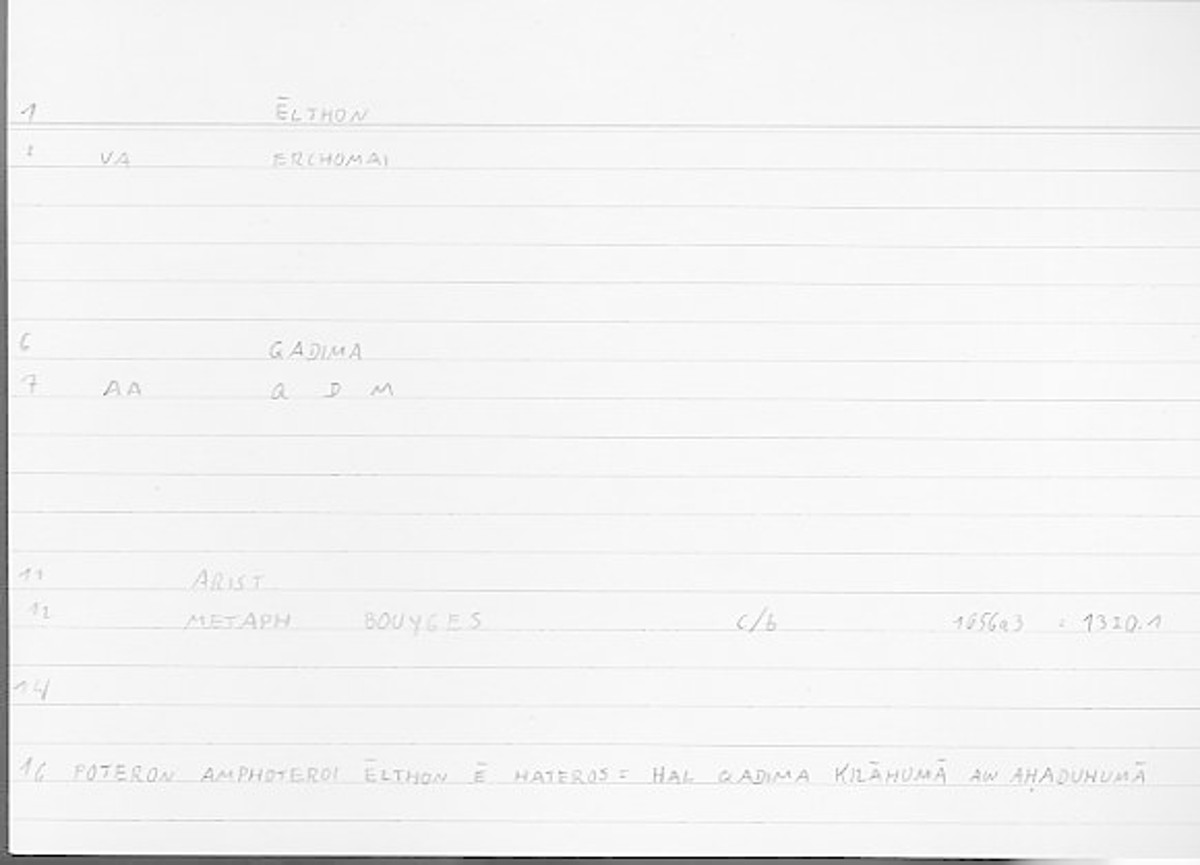 1 ĒLTHON
2 VA ERCHOMAI
6 QADIMA
7 AA Q D M
11 ARIST
12 METAPH BOUYGES C/b 1056a3 : 1320.1
14
16 POTERON AMPHOTEROI ĒLTHON Ē HATEROS = HAL QADIMA KILĀHUMĀ AW AḤADUHUMĀ